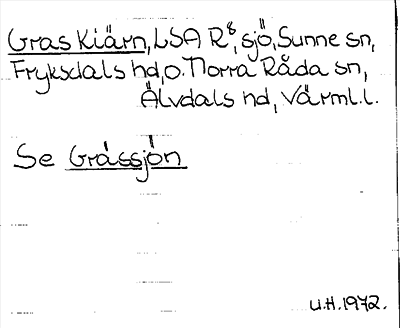 Gras Kiärn, LSA R8, sjö, Sunne sn,
Fryksdals hd, o. Norra Råda sn,
Älvdals hd, Värml.l.
Se Gråssjön
U.H. 1972.